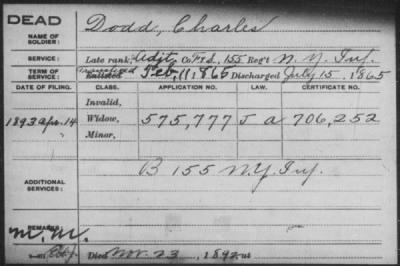 DEAD
NAME OF SOLDIER: Dodd, Charles
SERVICE: Late rank, Adjt, Co. F&S, 155 Reg't N. Y. Inf.
TERM OF SERVICE: Enlisted Feb, 11, 1865 Discharged July 15, 1865
DATE OF FILING. CLASS. APPLICATION NO. LAW. CERTIFICATE NO.
Invalid,
1893 Apr. 14 Widow, 575,777 J a 706,252
" Minor,
ADDITIONAL SERVICES: B 155 N.Y. Inf.
REMARKS:
M. M.
Died Nov. 23, 1892